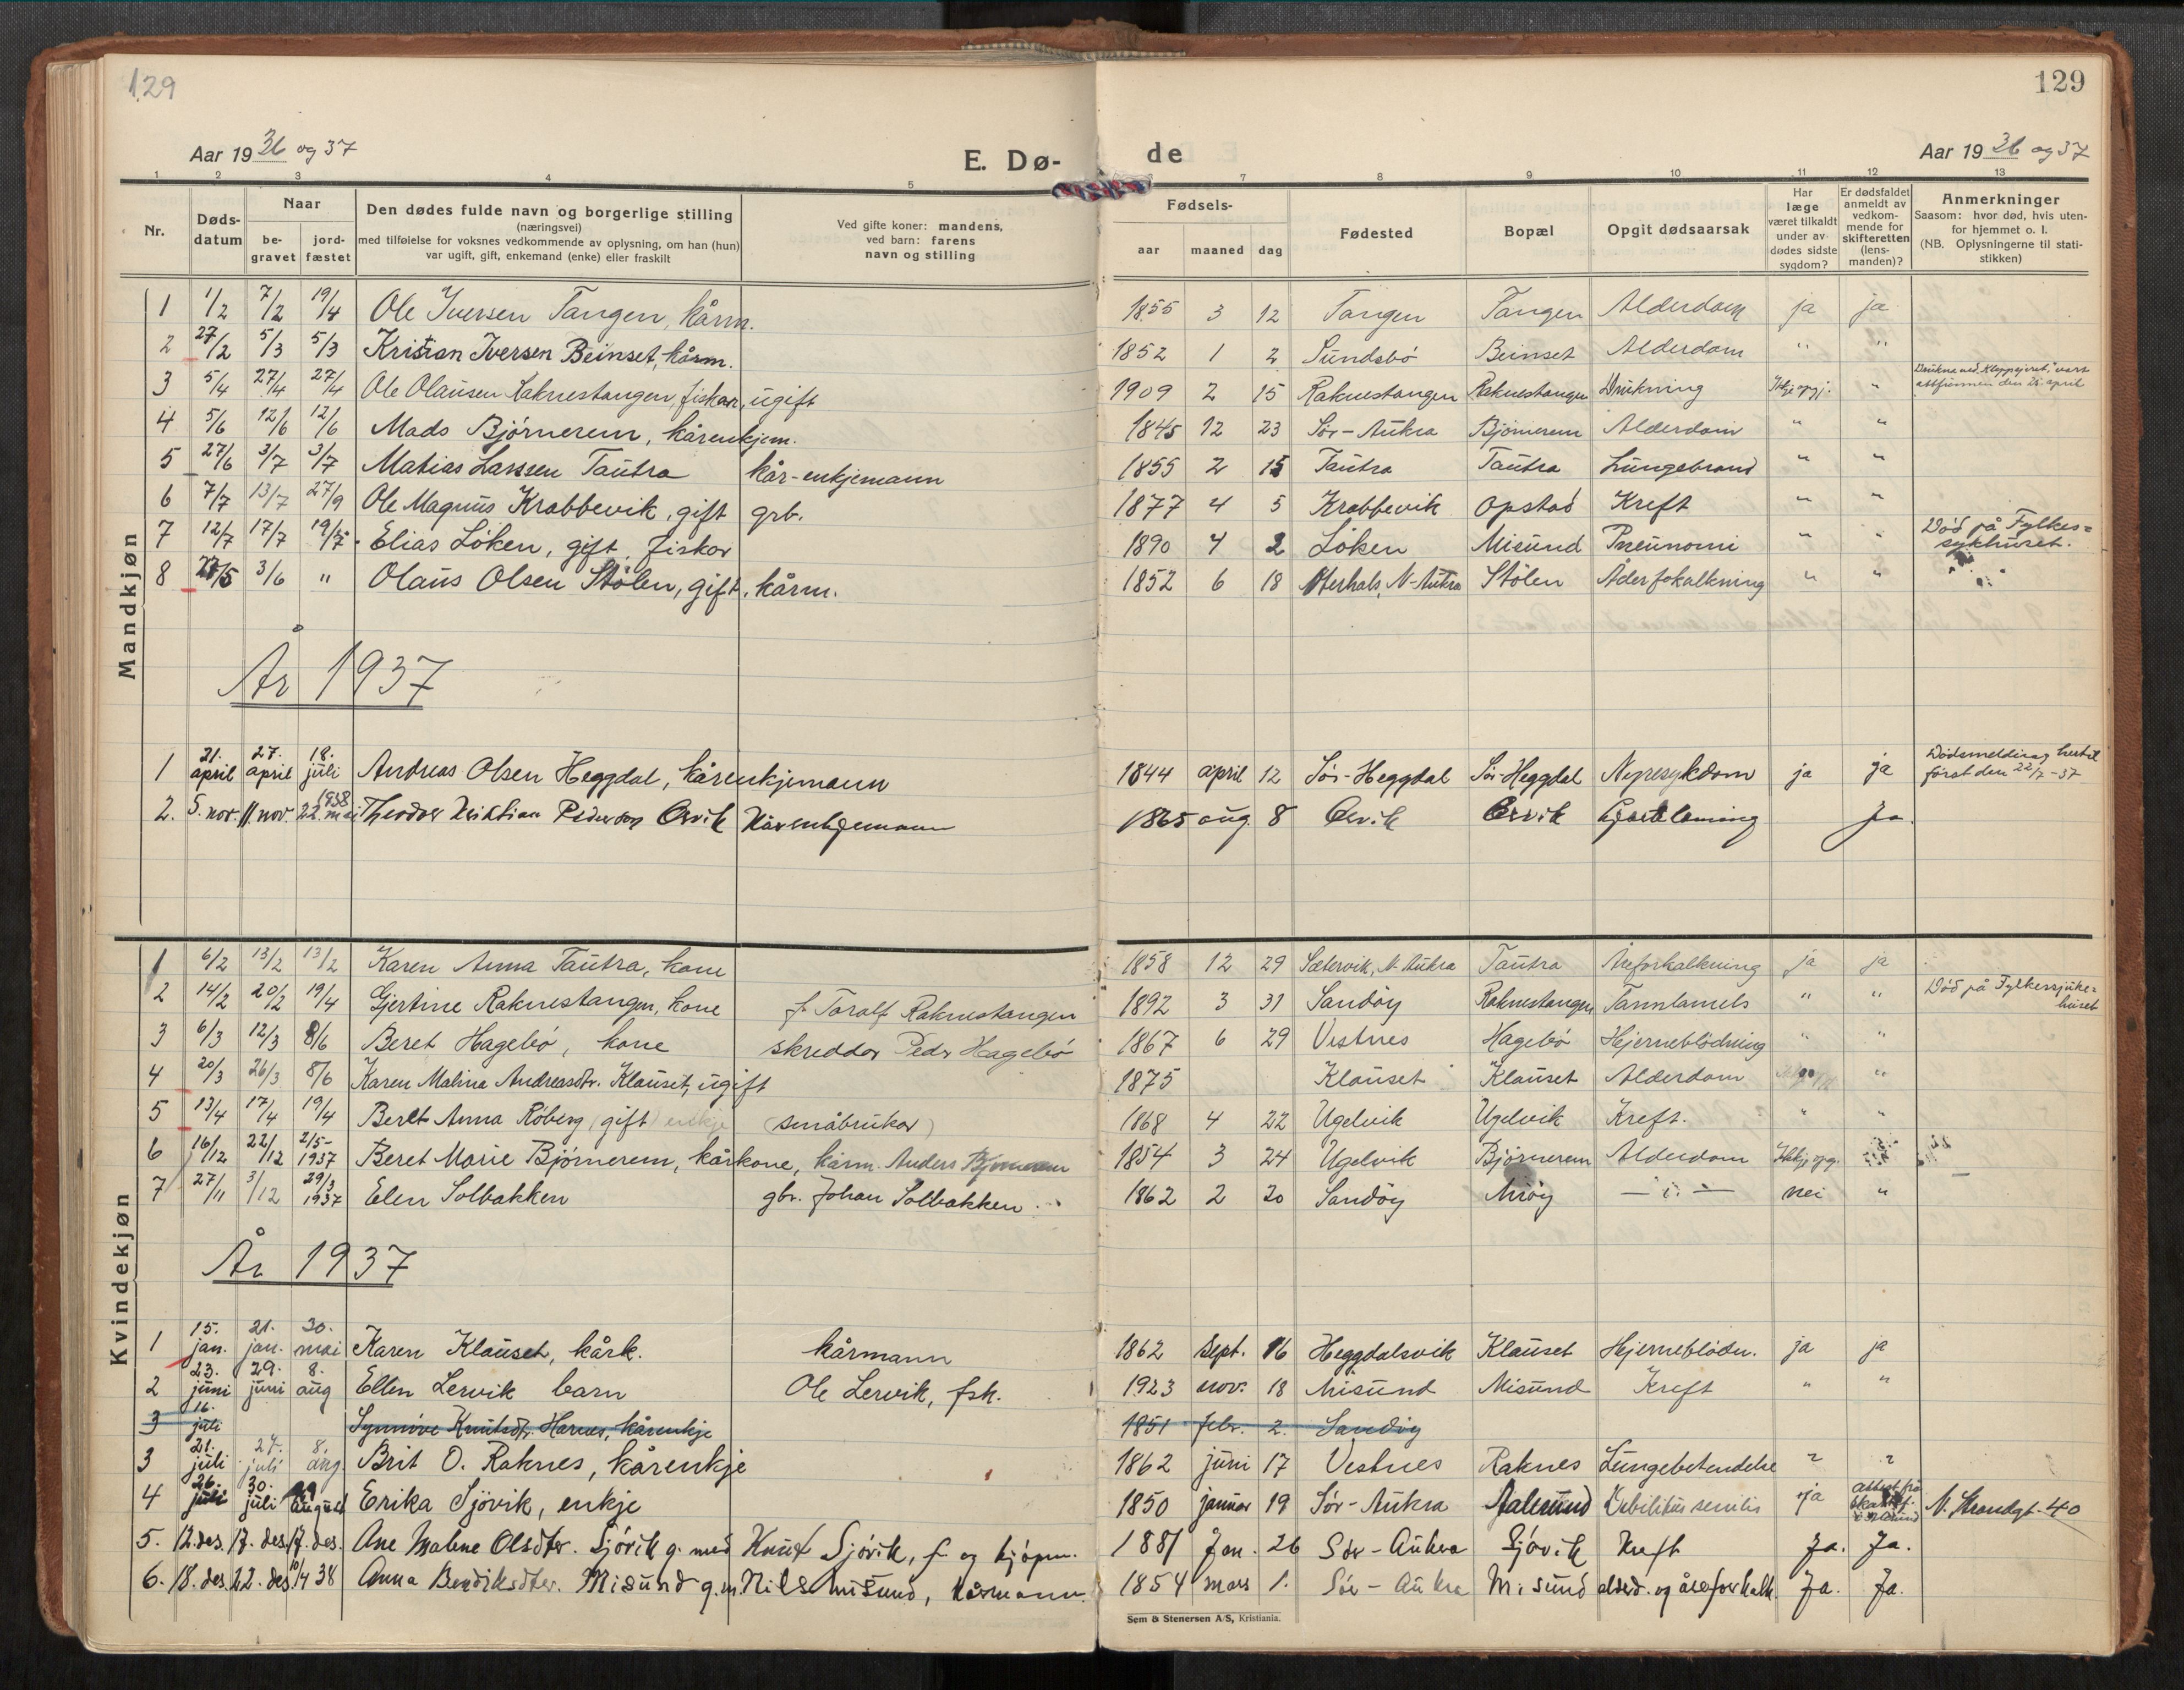 129
129
Aar 1936 og 37
E. Dø-
de
Aar 1936 og 37
1 2 3 4 5 6 7 8 9 10 11 12 13
Nr.
Døds-
datum
Naar
be-
gravet
jord-
fæstet
Den dødes fulde navn og borgerlige stilling
(næringsvei)
med tilføielse for voksnes vedkommende av oplysning, om han (hun)
var ugift, gift, enkemand (enke) eller fraskilt
Ved gifte koner: mandens,
ved barn: farens
navn og stilling
Fødsels-
aar maaned dag
Fødested
Bopæl
Opgit dødsaarsak
Har
læge
været tilkaldt
under av-
dødes sidste
sygdom?
Er dødsfaldet
anmeldt av
vedkom-
mende for
skifteretten
(lens-
manden)?
Anmerkninger
Saasom: hvor død, hvis uten-
for hjemmet o. l.
(NB. Oplysningerne til stati-
stikken)
Mandkjøn
1 1/2 7/2 19/4 Ole Iversen Tangen, kårm. 1855 3 12 Tangen Tangen Alderdom ja ja
2 27/2 5/3 5/3 Kristian Iversen Beinset, kårm. 1852 1 2 Sundsbö Beinset Alderdom " "
3 5/4 27/4 27/4 Ole Olausen Raknestangen, fiskar, ugift 1909 2 15 Raknestangen Raknestangen Drukning "
attfunnen den 26. april
4 5/6 12/6 12/6 Mads Björnerem, kårenkjem. 1845 12 23 Sör-Aukra Björnerem Alderdom " "
5 27/6 3/7 3/7 Matias Larssen Tautra kår-enkjemann 1855 2 15 Tautra Tautra Lungebrand " "
6 7/7 13/7 27/9 Ole Magnus Krabbevik, gift grb. 1877 4 5 Krabbevik Opstad Kreft " "
7 12/7 17/7 19/7 Elias Löken, gift, fiskar 1890 4 2 Löken Misund Pneunomi " " Död på Fylkes=
sykhuset.
8 27/5 3/6 " Olaus Olsen Stölen, gift, kårm. 1852 6 18 Oterhals, N-Aukra Stölen Åderfokalkning " "
År 1937
1 21. april 27. april 18. juli Andreas Olsen Heggdal, kårenkjemann 1844 april 12 Sör-Heggdal Sör-Heggdal Nyresykdom ja ja Dödsmelding hertil
först den 22/7-37
2. 5. nov. 11. nov. 22. mai 1938 Theodor Kristian Pederson Orvik Kårenkjemann 1865 aug. 8 Orvik Orvik Ja.
Kvindekjøn
1 6/2 13/2 13/2 Karen Anna Tautra, kone 1858 12 29 Sætervik, N-Aukra Tautra Åreforkalkning ja ja
2 14/2 20/2 19/4 Gjertine Raknestangen, kone f. Toralf Raknestangen 1892 3 31 Sandöy Raknestangen " " Död på Fylkessjuke=
huset
3 6/3 12/3 8/6 Beret Hagebö, kone skreddar Peder Hagebö 1867 6 29 Vestnes Hagebö Hjerneblödning " "
4 20/3 26/3 8/6 Karen Malina Andreasdtr. Klauset, ugift 1875 Klauset Klauset Alderdom "
5 13/4 17/4 19/4 Beret Anna Röberg (gift) enkje (småbrukar) 1868 4 22 Ugelvik Ugelvik Kreft. " "
6 16/12 22/12 2/5-1937 Beret Marie Björnerem, kårkone, kårm. Anders Björnerem 1854 3 24 Ugelvik Björnerem Alderdom Ikkje opg.
7 27/11 3/12 29/3 1937 Elen Solbakken gbr. Johan Solbakken 1862 2 20 Sandöy Miöy — " — nei "
År 1937
1 15. jan. 21. jan. 30. mai Karen Klauset, kårk. kårmann 1862 sept. 16 Heggdalsvik Klauset Hjerneblödn. ja ja
2 23. juni 29. juni 8. aug Ellen Lervik barn Ole Lervik, fsk. 1923 nov. 18 Misund Misund Kreft " "
3 16. juli Synnöve Knutsdtr. Harnes, kårenkje 1851 febr. 2. Sandöy
3 21. juli 27. juli 8. aug. Brit O. Raknes, kårenkje 1862 juni 17 Vestnes Raknes Lungebetendelse ? ?
4 26. juli 30. juli august Erika Sjövik, enkje 1850 januar 19 Sör-Aukra Aalesund Debilitas senilis ja attest frå N. Strandgt. 40
5. 12. des. 17. des. 17. des. Ane Malene Olsdter. Sjövik g. med Knut Sjövik, f. og kjöpm. 1881 Jan. 26 Sör-Aukra Sjövik Kreft Ja. Ja.
6. 18. des. 22. des. 10/4 38 Anna Bendiksdter. Misund g.m. Nils Misund, kårmann. 1854 mars 1. Sör-Aukra Misund alderd. og åreforkalk. Ja. Ja.
Sem & Stenersen A/S, Kristiania.